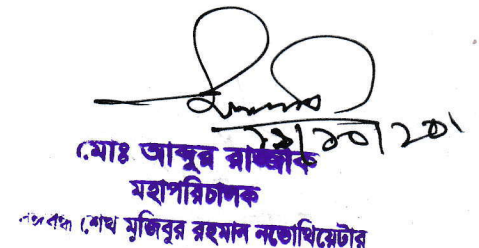 মোঃ আব্দুর রাজ্জাক
মহাপরিচালক
বঙ্গবন্ধু শেখ মুজিবুর রহমান নভোথিয়েটার